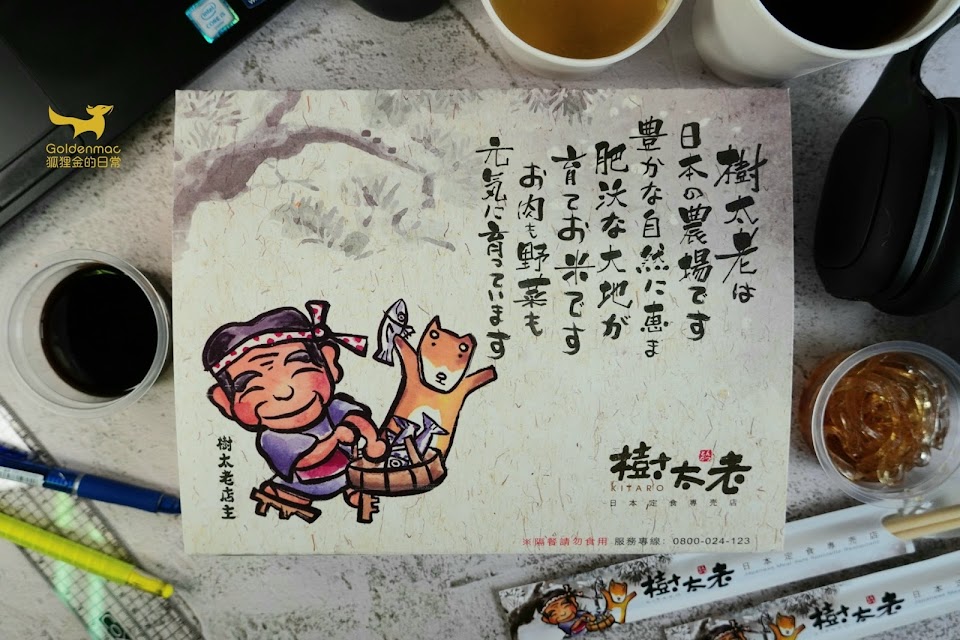 intel
CORE i5
Goldenmac
狐狸金的日常
樹太老は
日本の農場です
豊かな自然に恵ま
肥沃な大地が
育てお米です
お肉も野菜も
元気に育っています
樹太老店主
樹太老
KITARO
日本定食專売店
米隔餐請勿食用 服務專線：0800-024-123
樹太老
日本定食專売店
樹太老
日本